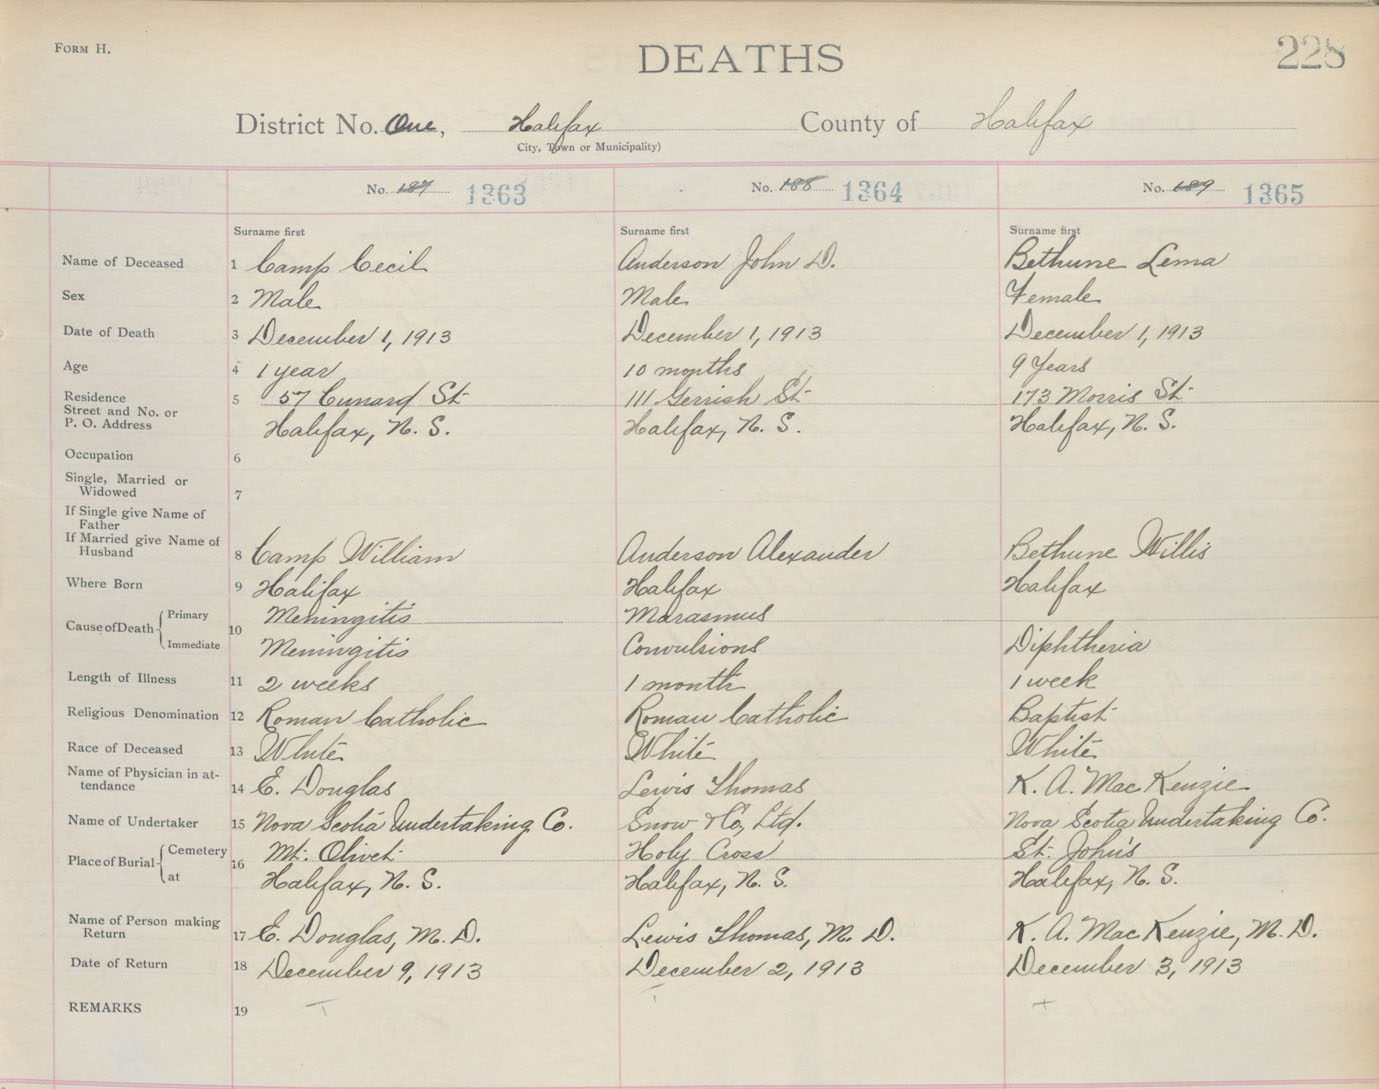 FORM H.
DEATHS
228
District No. One, Halifax County of Halifax
City, Town or Municipality)
No. 187 1363 No. 188 1364 No. 189 1365
Surname first Surname first Surname first
Name of Deceased 1 Camp Cecil Anderson John D. Bethune Lema
Sex 2 Male Male Female
Date of Death 3 December 1, 1913 December 1, 1913 December 1, 1913
Age 4 1 year 10 months 9 Years
Residence 5 57 Cunard St 111 Gerrish St 173 Morris St
Street and No. or
P. O. Address Halifax, N. S. Halifax, N. S. Halifax, N. S.
Occupation 6
Single, Married or
Widowed 7
If Single give Name of
Father
If Married give Name of
Husband 8 Camp William Anderson Alexander Bethune Willis
Where Born 9 Halifax Halifax Halifax
Cause of Death Primary 10 Meningitis Marasmus
Immediate Meningitis Convulsions Diphtheria
Length of Illness 11 2 weeks 1 month 1 week
Religious Denomination 12 Roman Catholic Roman Catholic Baptist
Race of Deceased 13 White White White
Name of Physician in at-
tendance 14 E. Douglas Lewis Thomas K. A. MacKenzie
Name of Undertaker 15 Nova Scotia Undertaking Co. Snow & Co, Ltd. Nova Scotia Undertaking Co.
Place of Burial Cemetery 16 Mt. Olivet Holy Cross St. John's
at Halifax, N. S. Halifax, N. S. Halifax, N. S.
Name of Person making
Return 17 E. Douglas, M. D. Lewis Thomas, M. D. K. A. MacKenzie, M. D.
Date of Return 18 December 9, 1913 December 2, 1913 December 3, 1913
REMARKS 19